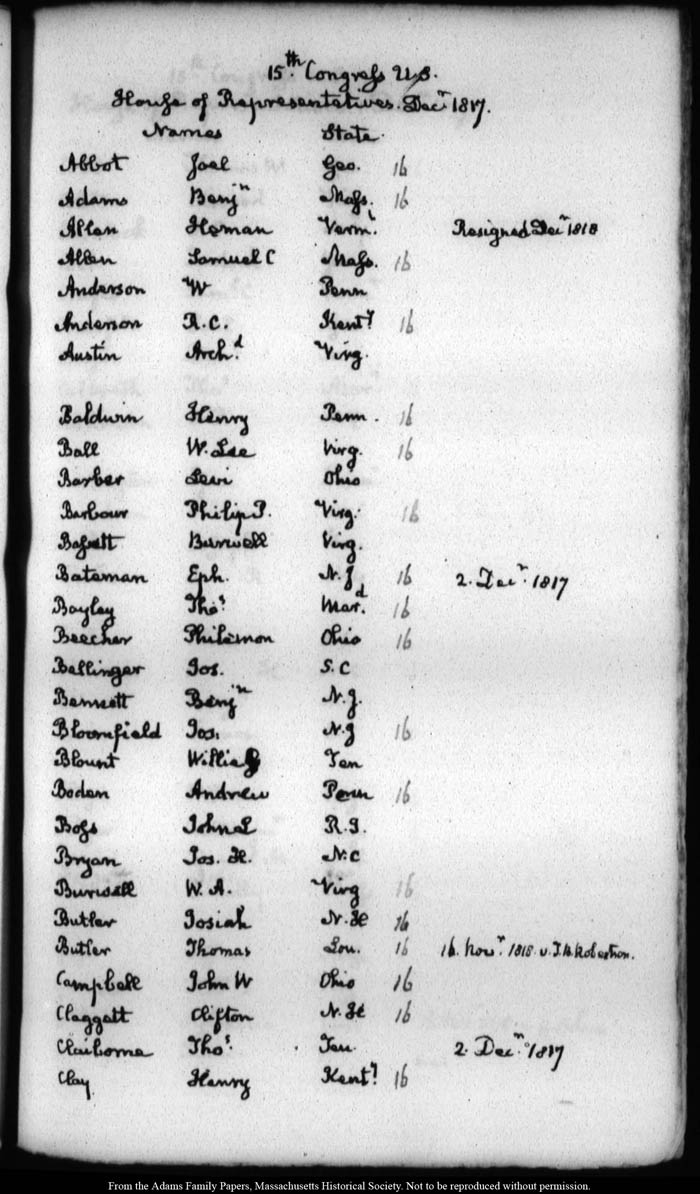 15th Congress U.S.
House of Representatives. Decr 1817.
Names State.
Abbot Joel Geo. 16
Adams Benjn Mass. 16
Allen Heman Vermt Resigned Decr 1818
Allen Samuel C Mass. 16
Anderson W Penn
Anderson R. C. Kenty 16
Austin Archd Virg.
Baldwin Henry Penn. 16
Ball W. Lee Virg. 16
Barber Levi Ohio
Barbour Philip P. Virg. 16
Bassett Burwell Virg.
Bateman Eph. N. J 16 2. Decr 1817
Bayley Thos Mard. 16
Beecher Philemon Ohio 16
Bellinger Jos. S. C
Bennett Benjn N. J.
Bloomfield Jos. N. J 16
Blount Willie G Ten
Boden Andrew Penn 16
Boss John L R. I.
Bryan Jos. H. N. C
Burwell W. A. Virg 16
Butler Josiah N. H 16
Butler Thomas Lou. 16 16. Novr 1818. v. T. B. Robertson.
Campbell John W Ohio 16
Claggett Clifton N. H 16
Claiborne Thos. Ten. 2. Decr. 1817
Clay Henry Kenty 16
From the Adams Family Papers, Massachusetts Historical Society. Not to be reproduced without permission.